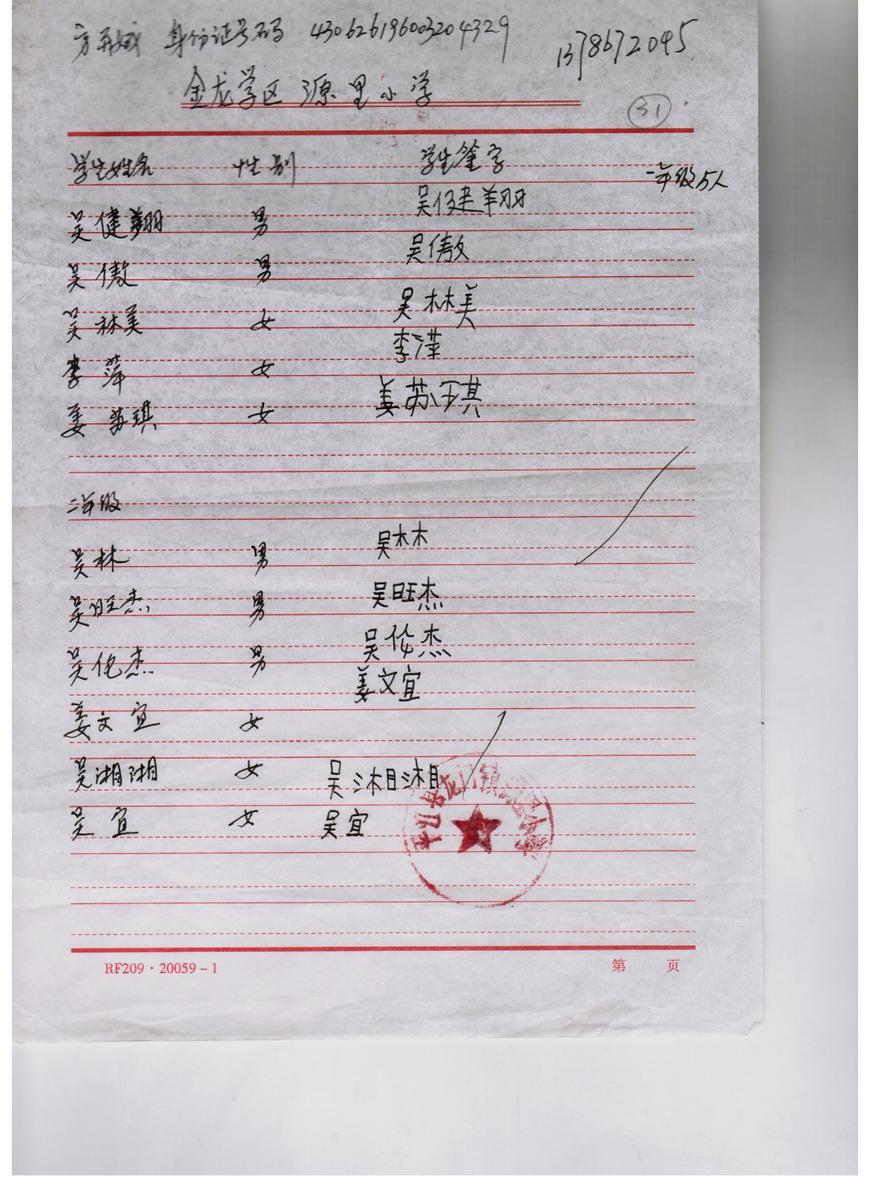 身份证号码 430626196003204329
1378672095
金龙学区 源里小学
31
学生姓名 性别 学生签字
一年级5人
吴健翔 男 吴健翔
吴傲 男 吴傲
吴林美 女 吴林美
李萍 女 李萍
姜苏琪 女 姜苏琪
二年级
吴林 男 吴林
吴旺杰 男 吴旺杰
吴佗杰 男 吴俊杰
姜文宜 女 姜文宜
吴湘湘 女 吴湘湘
吴宜 女 吴宜
平江县龙门镇源里小学
RF209·20059-1 第 页